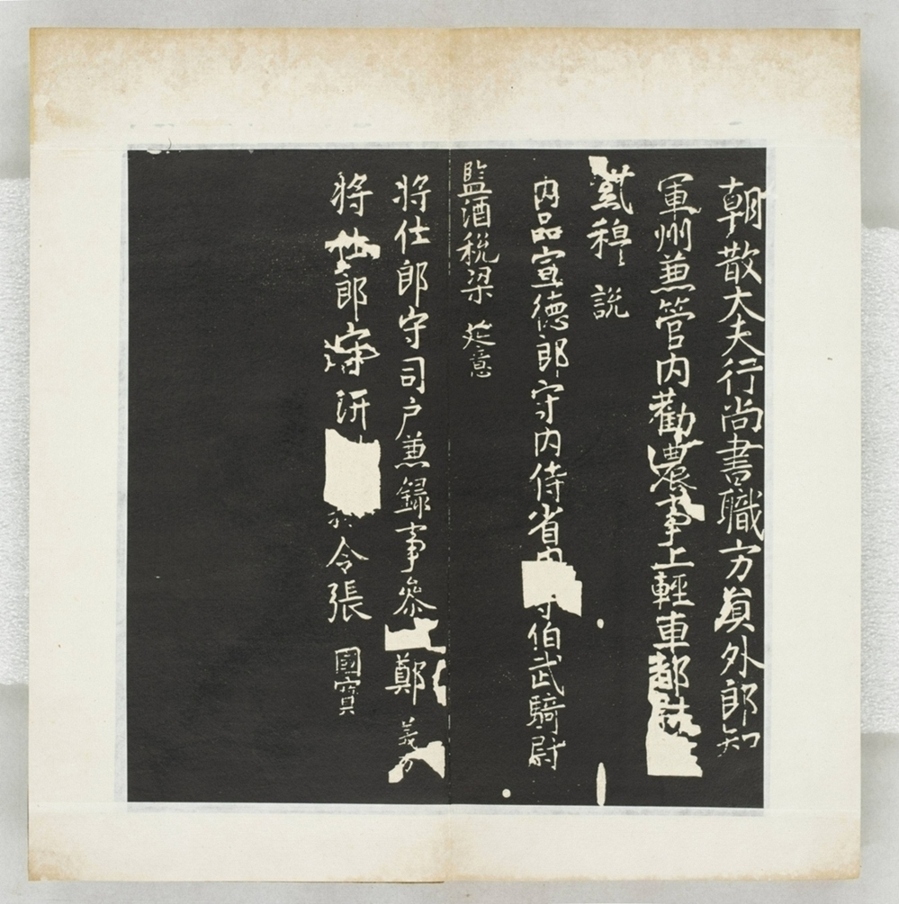 朝散大夫行尚書職方員外郎知
軍州兼管內勸農事上輕車都
說
內品宣德郎守內侍省內 寺伯武騎尉
監酒稅梁 延意
將仕郎守司户兼録事叅 鄭
將仕郎守汧 令張 國寶